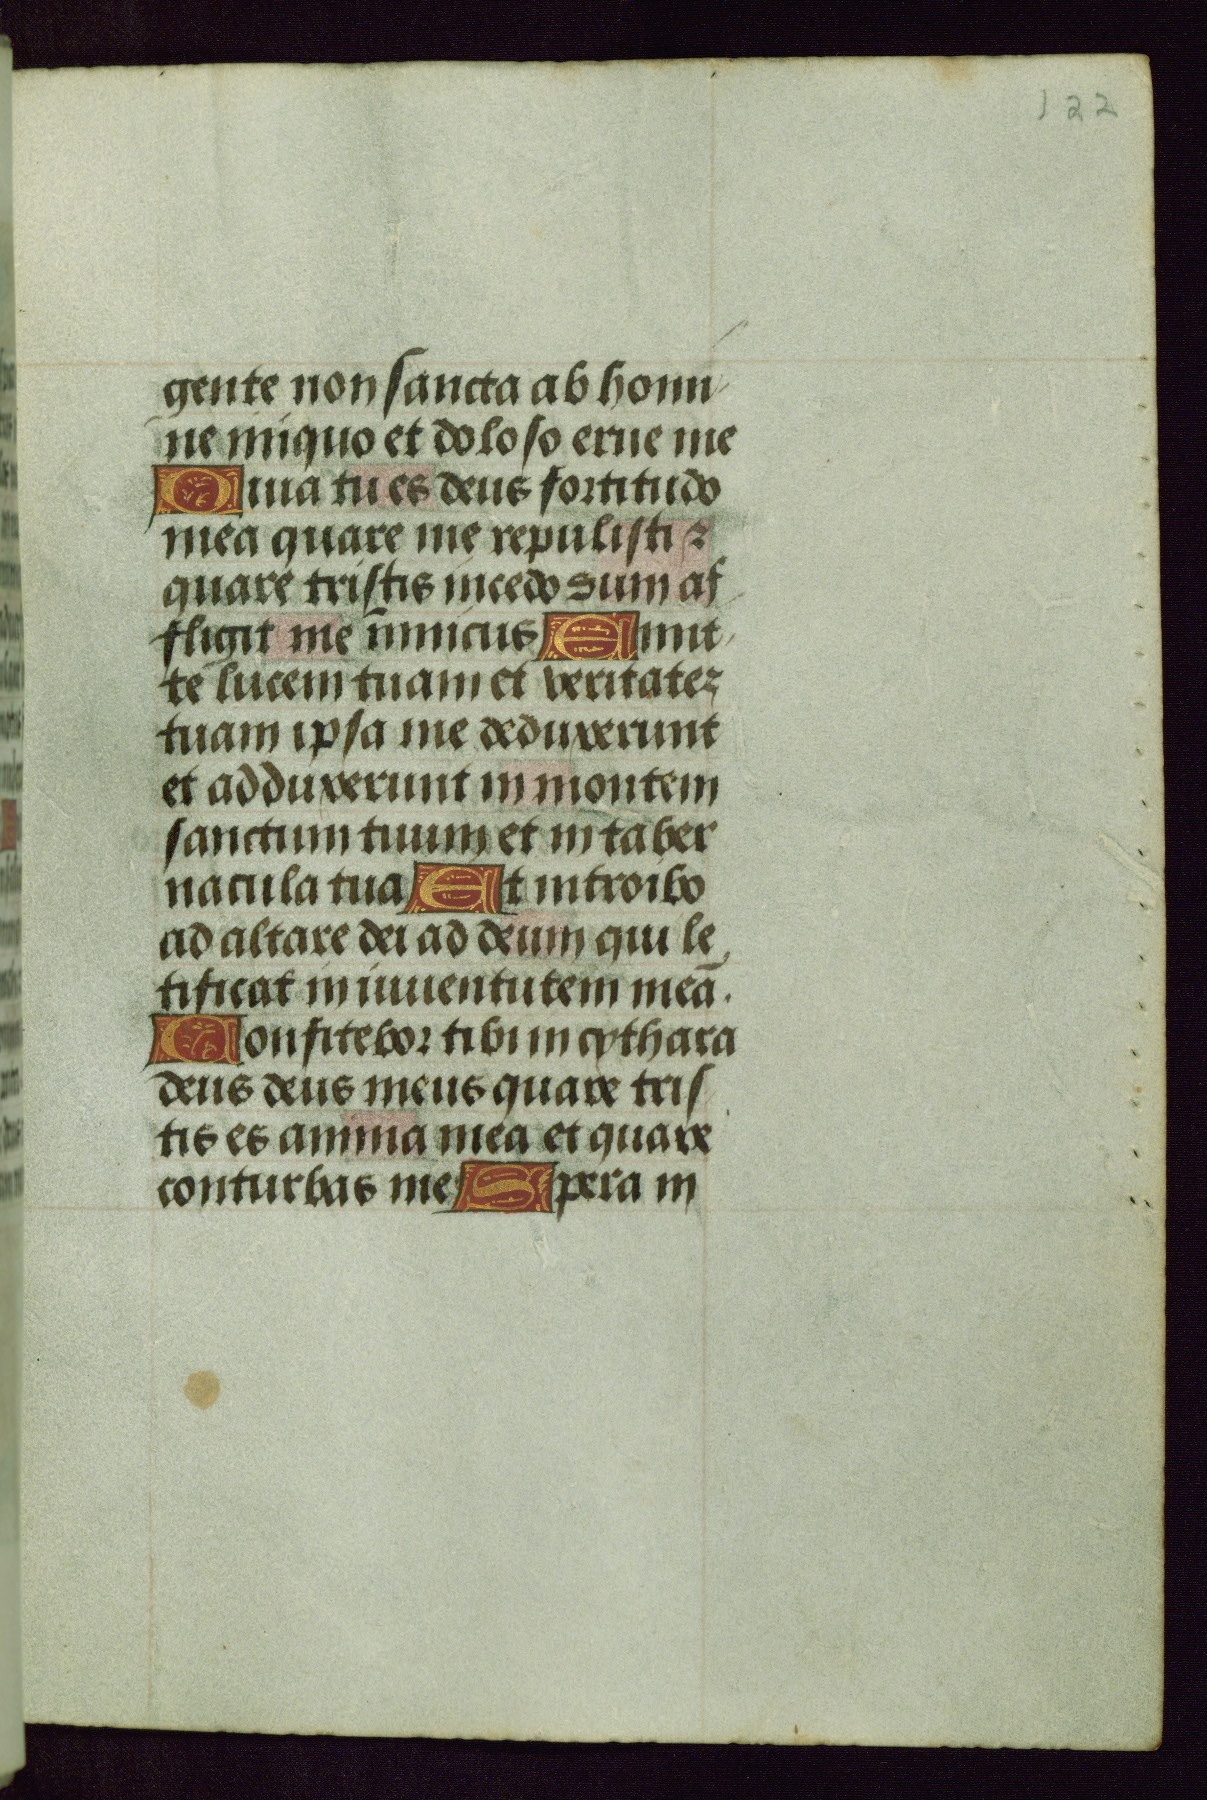 122
gente non sancta ab homi
ne iniquo et doloso erue me
Quia tu es deus fortitudo
mea quare me repulisti ⁊
quare tristis incedo dum af
fligit me inimicus Emit
te lucem tuam et veritateꝫ
tuam ipsa me deduxerunt
et adduxerunt in montem
sanctum tuum et in taber
nacula tua Et introibo
ad altare dei ad deum qui le
tificat in iuuentutem meā.
Confitebor tibi in cythara
deus deus meus quare tris
tis es anima mea et quare
conturbas me Spera in